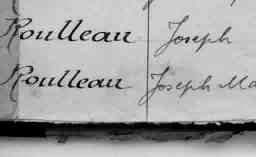 Roulleau Joseph
Roulleau Joseph Ma